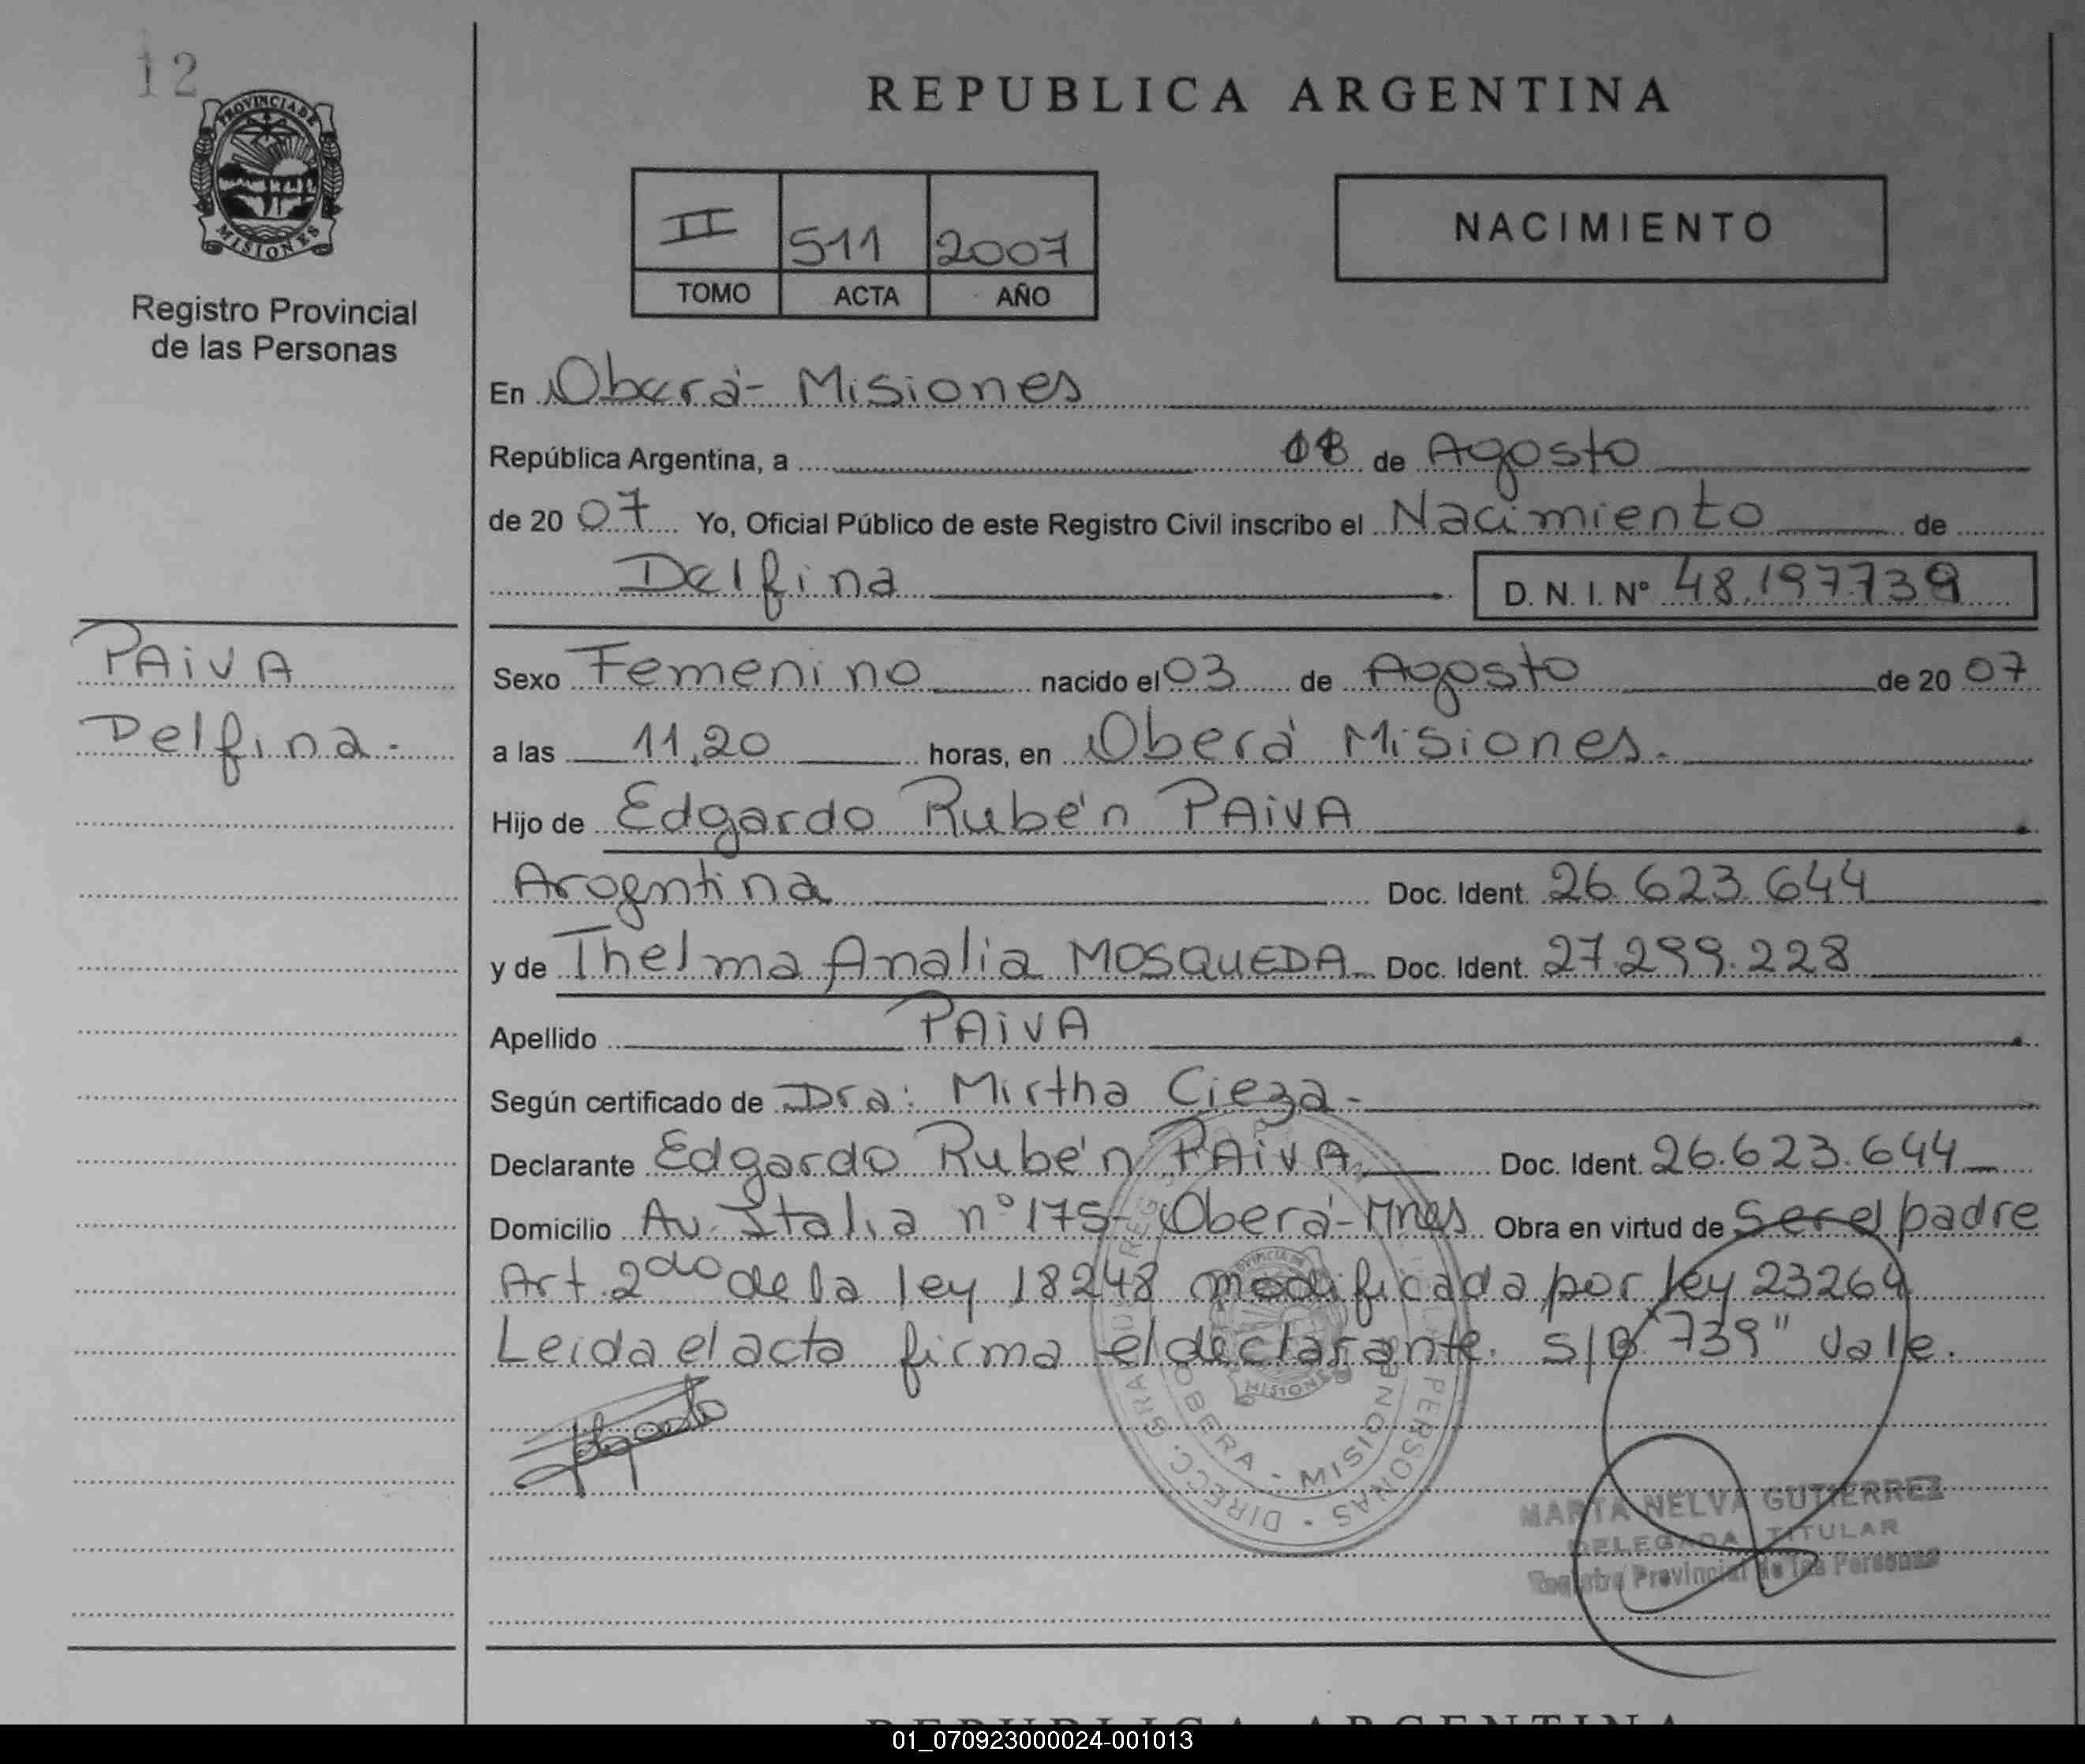 12
PROVINCIA DE
MISIONES
Registro Provincial
de las Personas
REPUBLICA ARGENTINA
II 511 2007
TOMO ACTA AÑO
NACIMIENTO
En Oberá - Misiones
República Argentina, a 08 de Agosto
de 20 07 Yo, Oficial Público de este Registro Civil inscribo el Nacimiento de
Delfina D. N. I. Nº 48.197739
PAiVA
Delfina.-
Sexo Femenino nacido el 03 de Agosto de 20 07
a las 11,20 horas, en Oberá Misiones.-
Hijo de Edgardo Rubén PAiVA
Argentina Doc. Ident. 26.623.644
y de Thelma Analia MOSQUEDA Doc. Ident. 27.299.228
Apellido PAiVA
Según certificado de Dra: Mirtha Cieza-
Declarante Edgardo Rubén PAiVA Doc. Ident. 26.623.644
Domicilio Av. Italia nº 175- Oberá-Mnes Obra en virtud de Ser el padre
Art. 2do de la ley 18248 modificada por ley 23264
Leida el acta firma el declarante. S/B "739" vale.
OBERA - MISIONES
MARTA NELVA GUTIERREZ
DELEGADA TITULAR
Registro Provincial de las Personas
REPUBLICA ARGENTINA
01_070923000024-001013